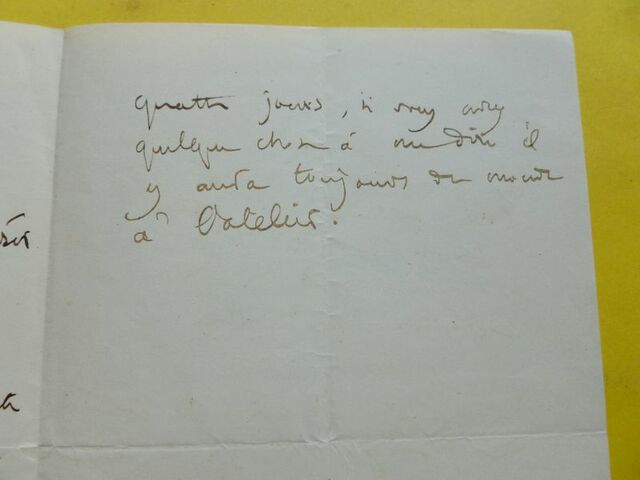 quatre jours, si vous avez
quelque chose à me dire il
y aura toujours du monde
à l'atelier.